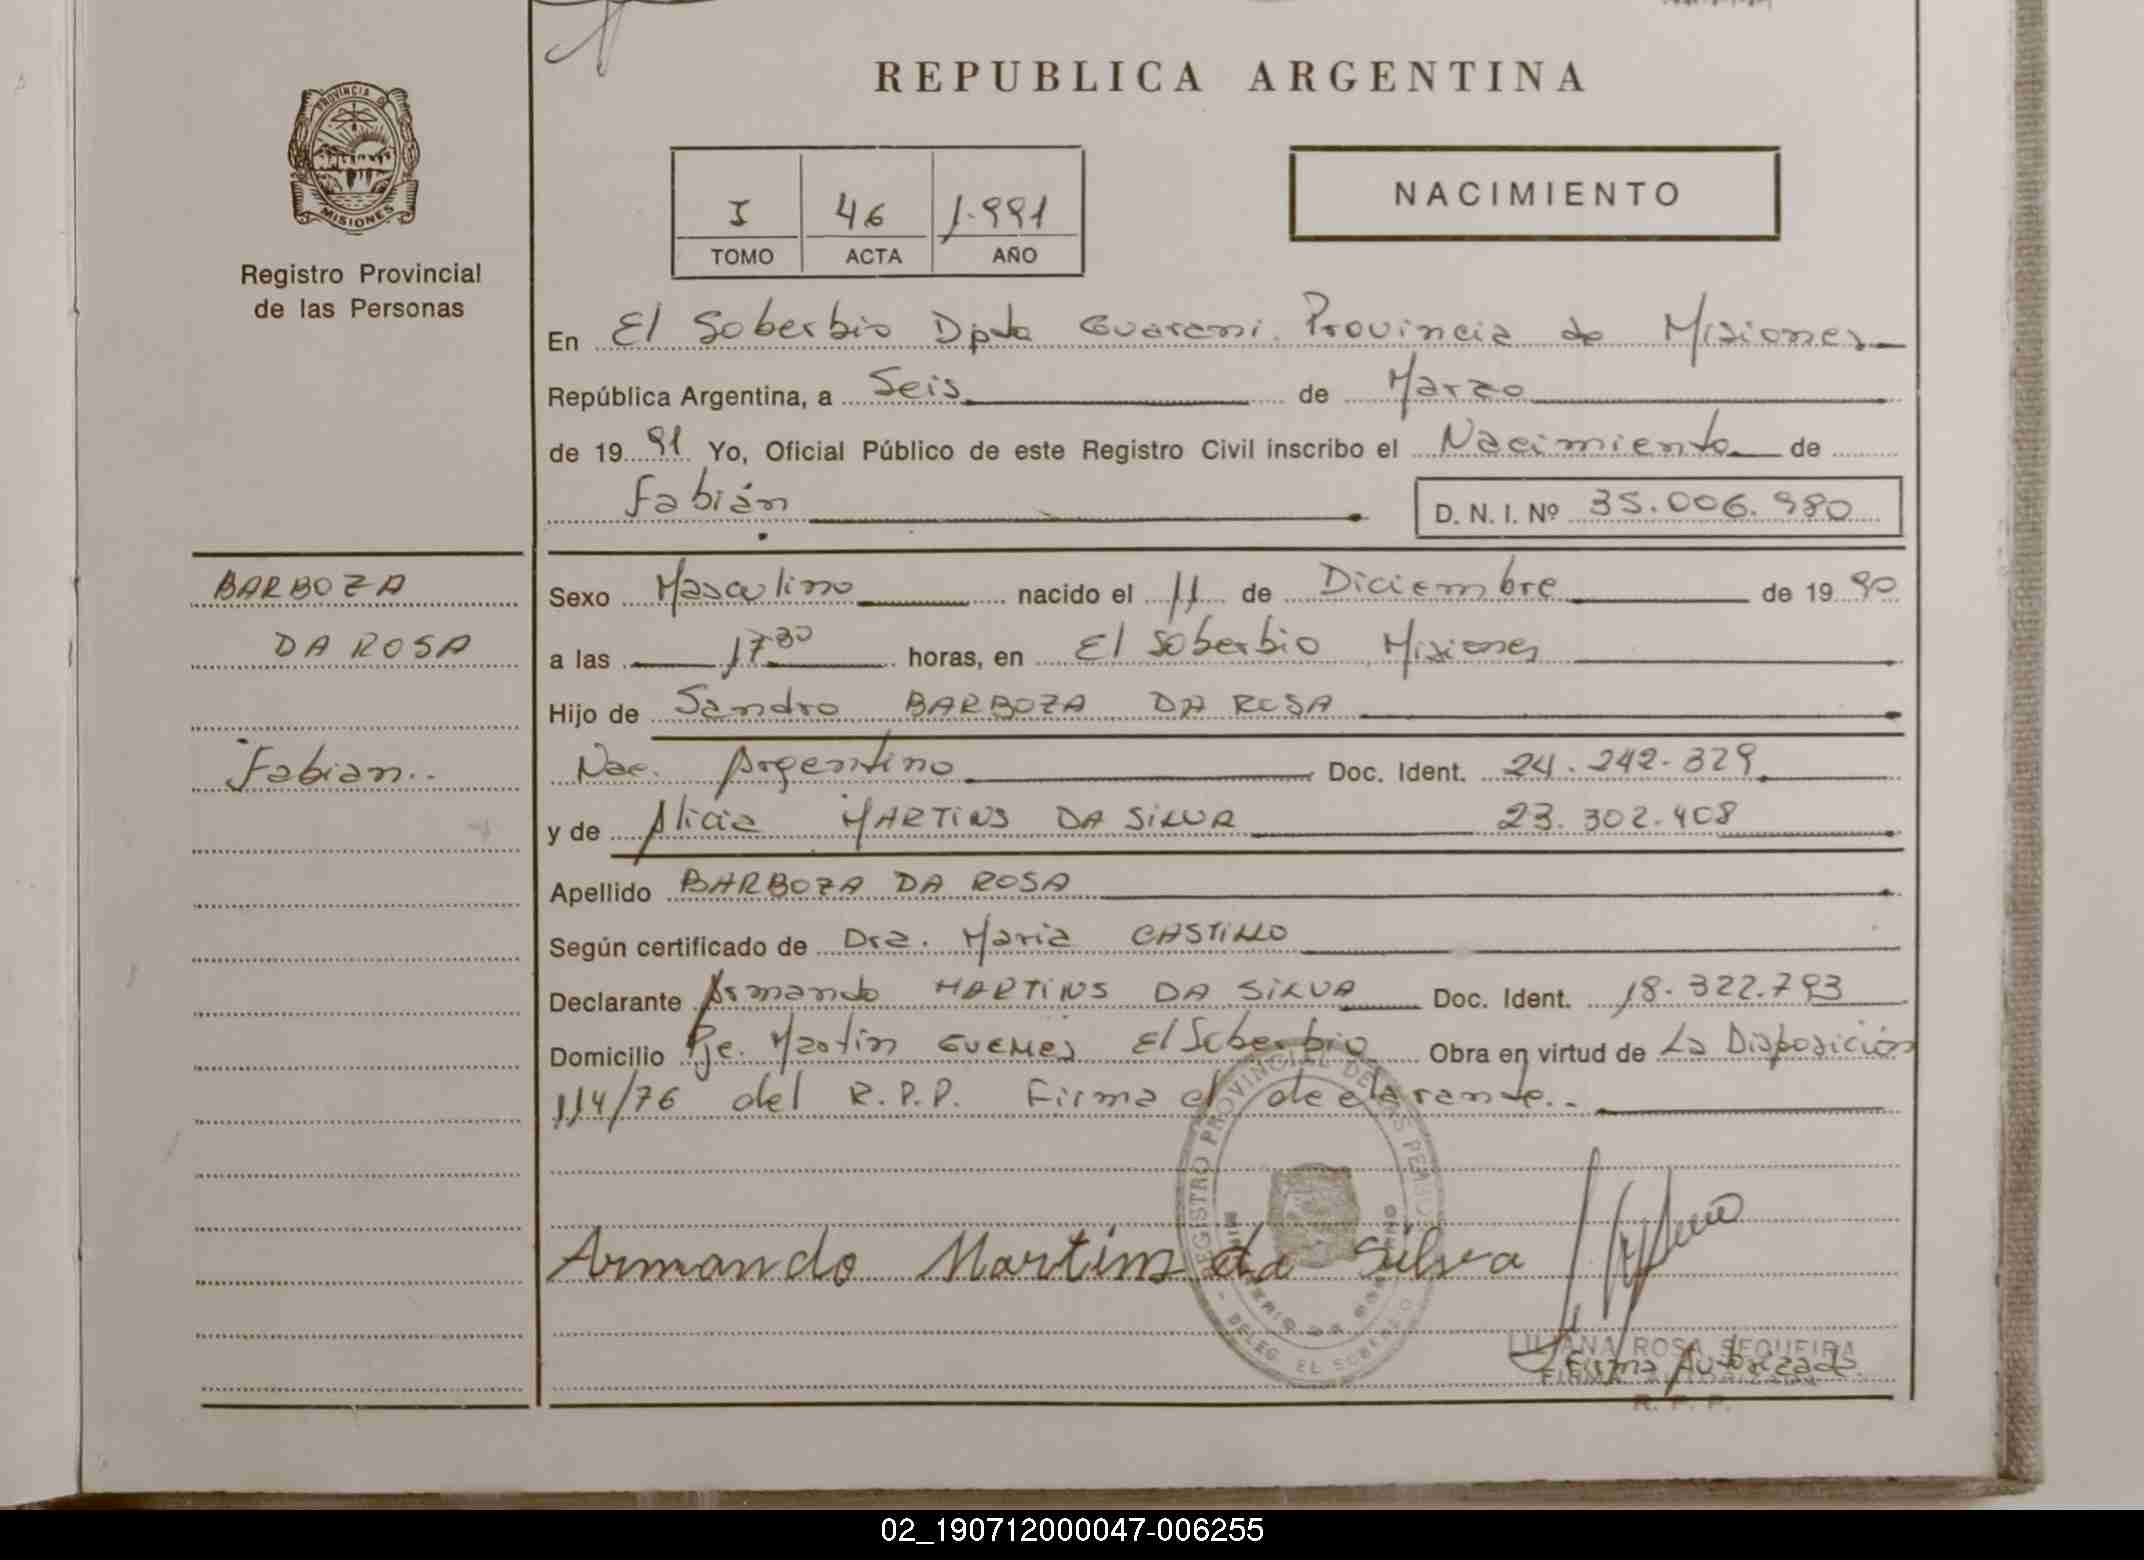 REPUBLICA ARGENTINA
PROVINCIA DE
MISIONES
Registro Provincial
de las Personas
I 46 1.991
TOMO ACTA AÑO
NACIMIENTO
En El Soberbio Dpto Guarani. Provincia de Misiones
República Argentina, a Seis de Marzo
de 1991 Yo, Oficial Público de este Registro Civil inscribo el Nacimiento de
Fabián D. N. I. Nº 35.006.980
BARBOZA
DA ROSA
Fabian..
Sexo Masculino nacido el 11 de Diciembre de 1990
a las 17 30 horas, en El Soberbio Misiones
Hijo de Sandro BARBOZA DA ROSA
Nac. Argentino Doc. Ident. 24.242.329
y de Alicia MARTINS DA SILVA 23.302.408
Apellido BARBOZA DA ROSA
Según certificado de Dra. Maria CASTILLO
Declarante Armando MARTINS DA SILVA Doc. Ident. 18.322.793
Domicilio Pje. Martin GUEMES El Soberbio Obra en virtud de La Disposición
114/76 del R.P.P. Firma el declarante..
REGISTRO PROVINCIAL DE LAS PERSONAS
- DELEG. EL SOBERBIO
MINISTERIO DE GOBIERNO
Armando Martins da Silva
LILIANA ROSA SEQUEIRA
Firma Autorizada
FIRMA AUTORIZADA
R. P. P.
02_190712000047-006255